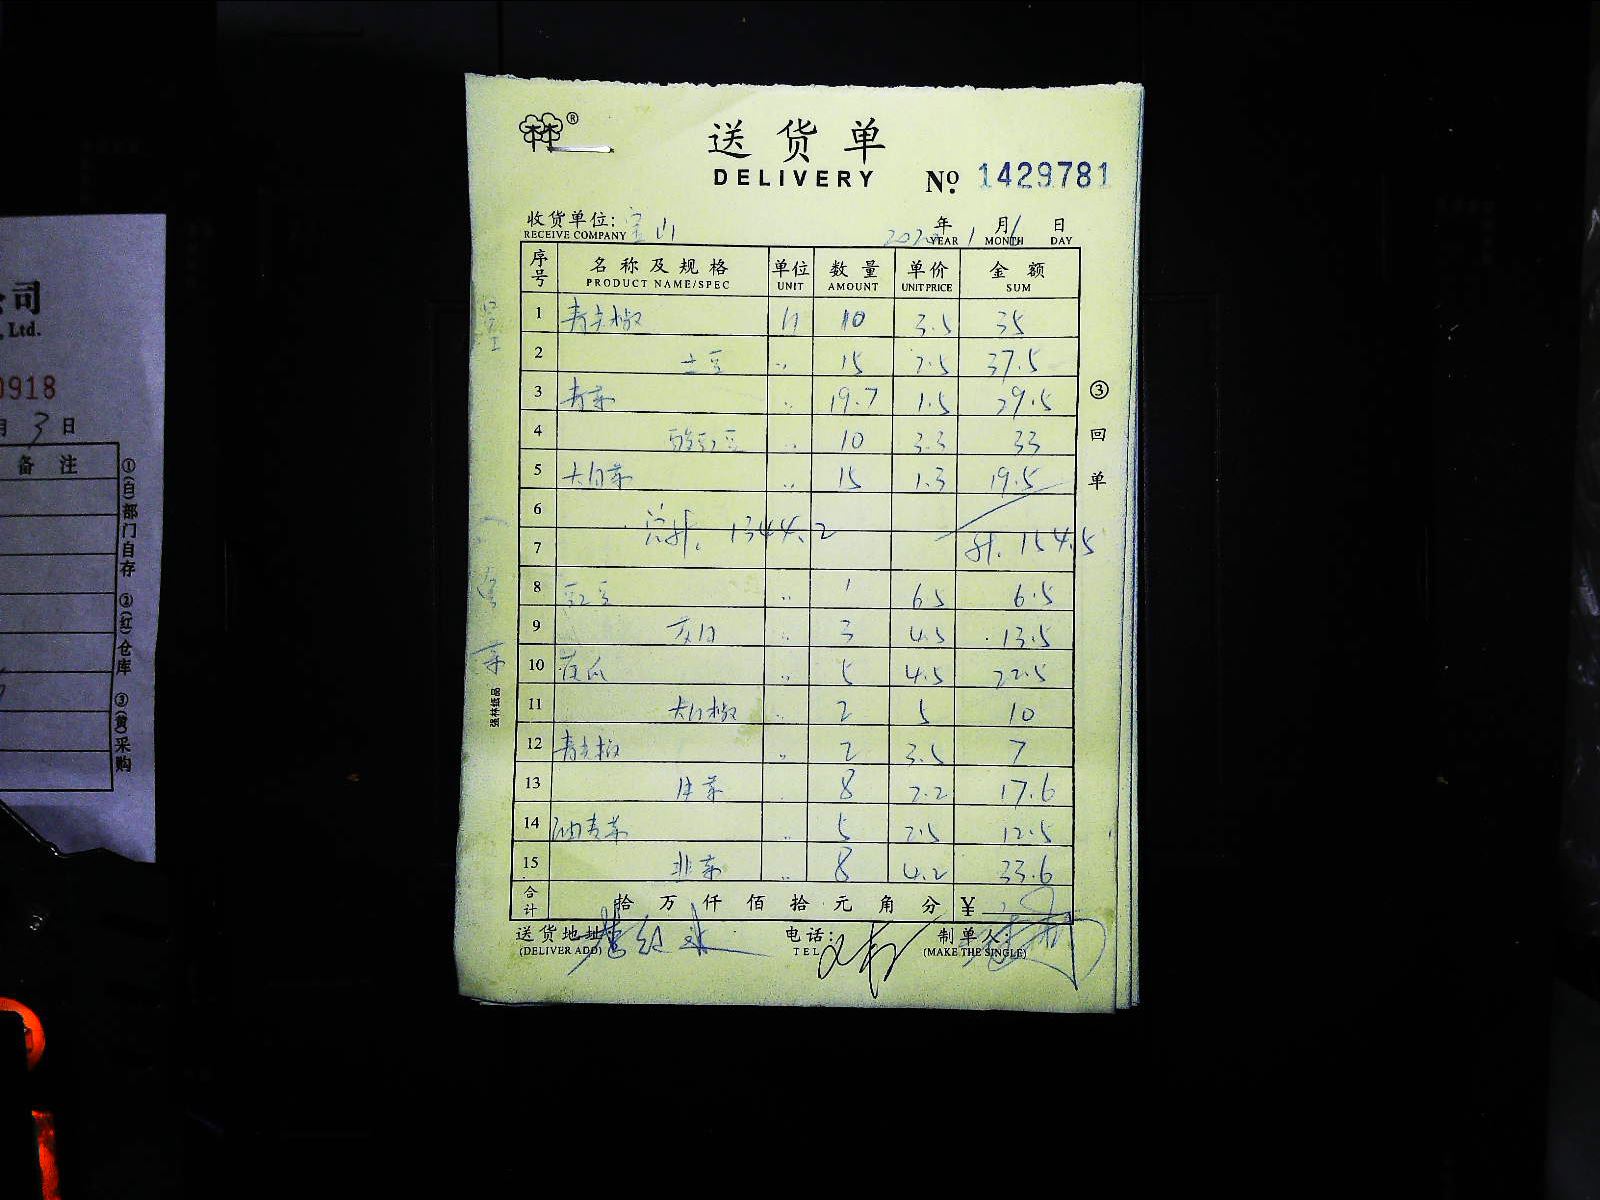 送货单
DELIVERY
№ 1429781
收货单位: 宝山
RECEIVE COMPANY
年 1 月 1 日
YEAR MONTH DAY
序号 名称及规格 单位 数量 单价 金额
PRODUCT NAME/SPEC UNIT AMOUNT UNIT PRICE SUM
1 青尖椒 〃 10 3.5 35
2 土豆 〃 15 2.5 37.5
3 青菜 〃 19.7 1.5 29.5
4 酸豇豆 〃 10 3.3 33
5 大白菜 〃 15 1.3 19.5
6
总计. 1344.2
7 计. 154.5
8 豇豆 〃 1 6.5 6.5
9 〃 3 4.5 13.5
10 〃 5 4.5 22.5
11 〃 2 5 10
12 青尖椒 〃 2 3.5 7
13 8 2.2 17.6
14 油麦菜 〃 5 2.5 12.5
15 韭菜 〃 8 4.2 33.6
合计 拾 万 仟 佰 拾 元 角 分 ¥
送货地址:
(DELIVER ADD)
电话:
TEL
制单人:
(MAKE THE SINGLE)
③回单
强林纸品
公司
, Ltd.
0918
月 3 日
备注
①(白)部门自存 ②(红)仓库 ③(黄)采购